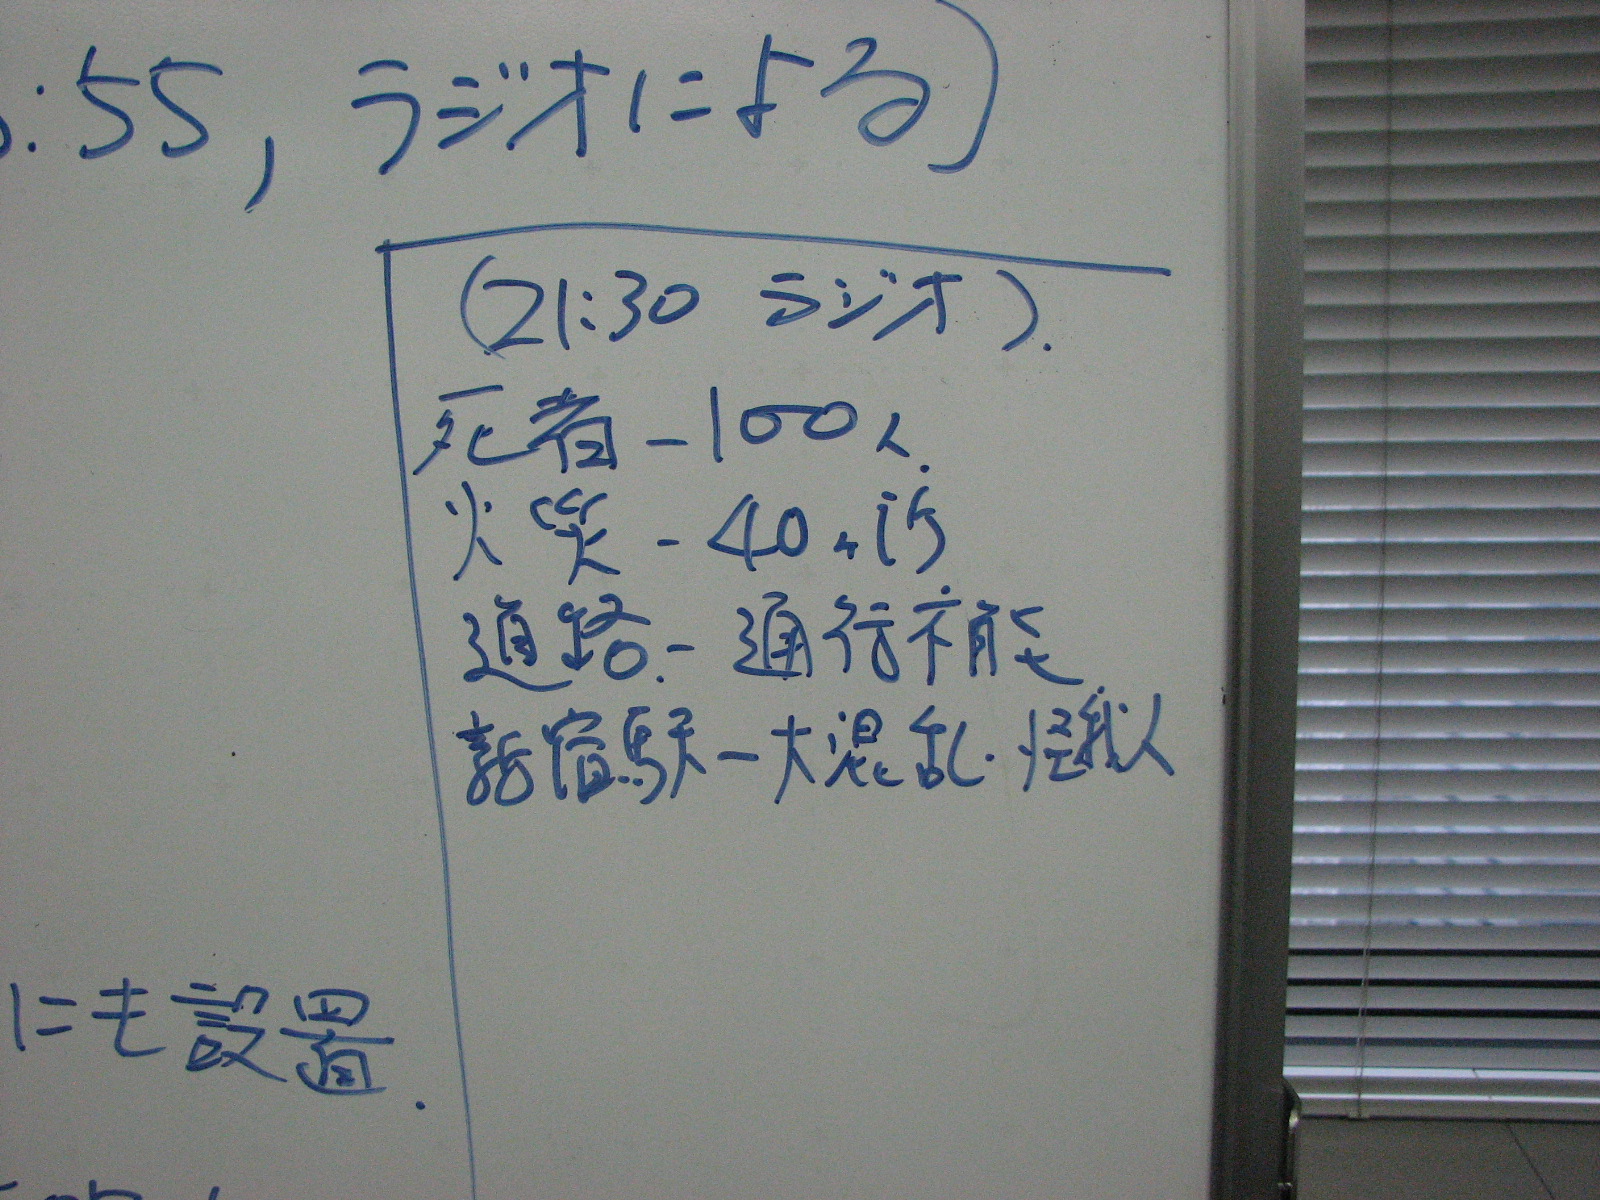 :55, ラジオによる)
(21:30 ラジオ).
死者 - 100人.
火災 - 40ヶ所
道路 - 通行不能
新宿駅 - 大混乱. 怪我人
にも設置.